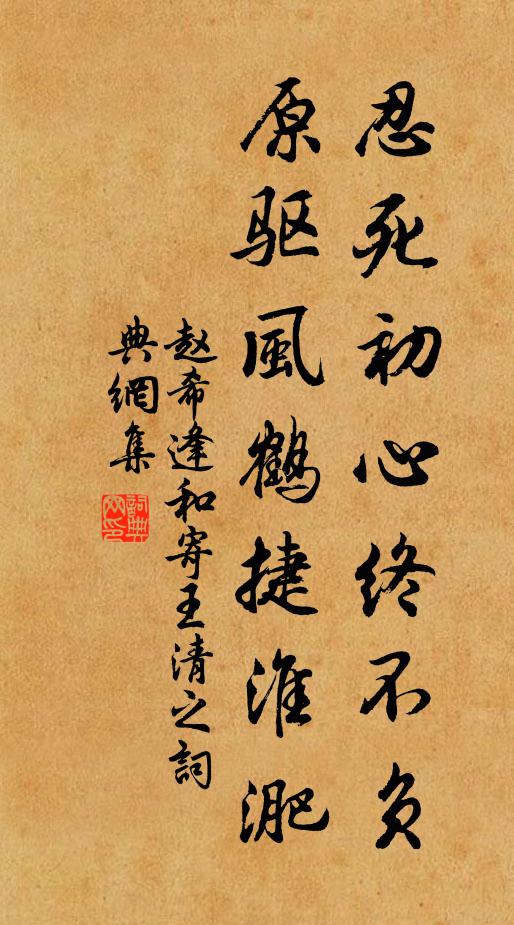 忍死初心终不负
原驱風鹤捷淮淝
赵希逢和寄王清之詞
典網集
詞典
网印